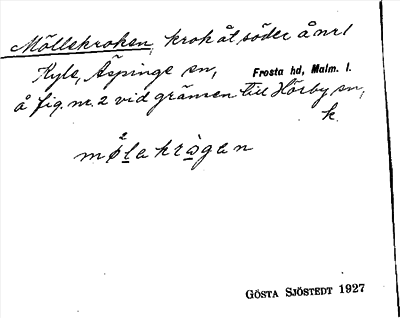 Möllekroken, krok åt söder å nr 1
Kyle, Äspinge sn, Frosta hd, Malm. l.
å fig. nr. 2 vid gränsen till Hörby sn,
k.
GÖSTA SJÖSTEDT 1927